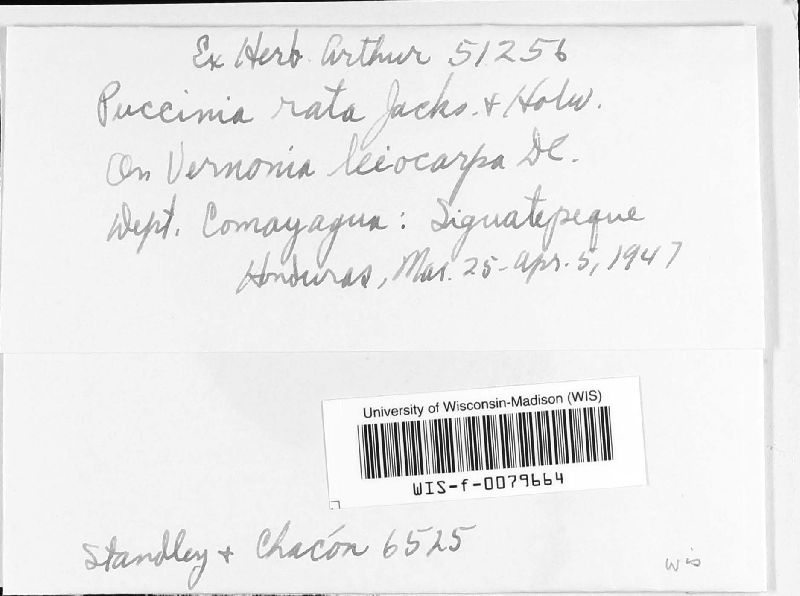 Ex Herb. Arthur 51256
Puccinia rata Jacks. & Holw.
On Vernonia leiocarpa DC.
Dept. Comayagua: Siguatepeque
Honduras, Mar. 25-Apr. 5, 1947
University of Wisconsin-Madison (WIS)
WIS-f-0079664
Standley & Chacón 6525
Wis